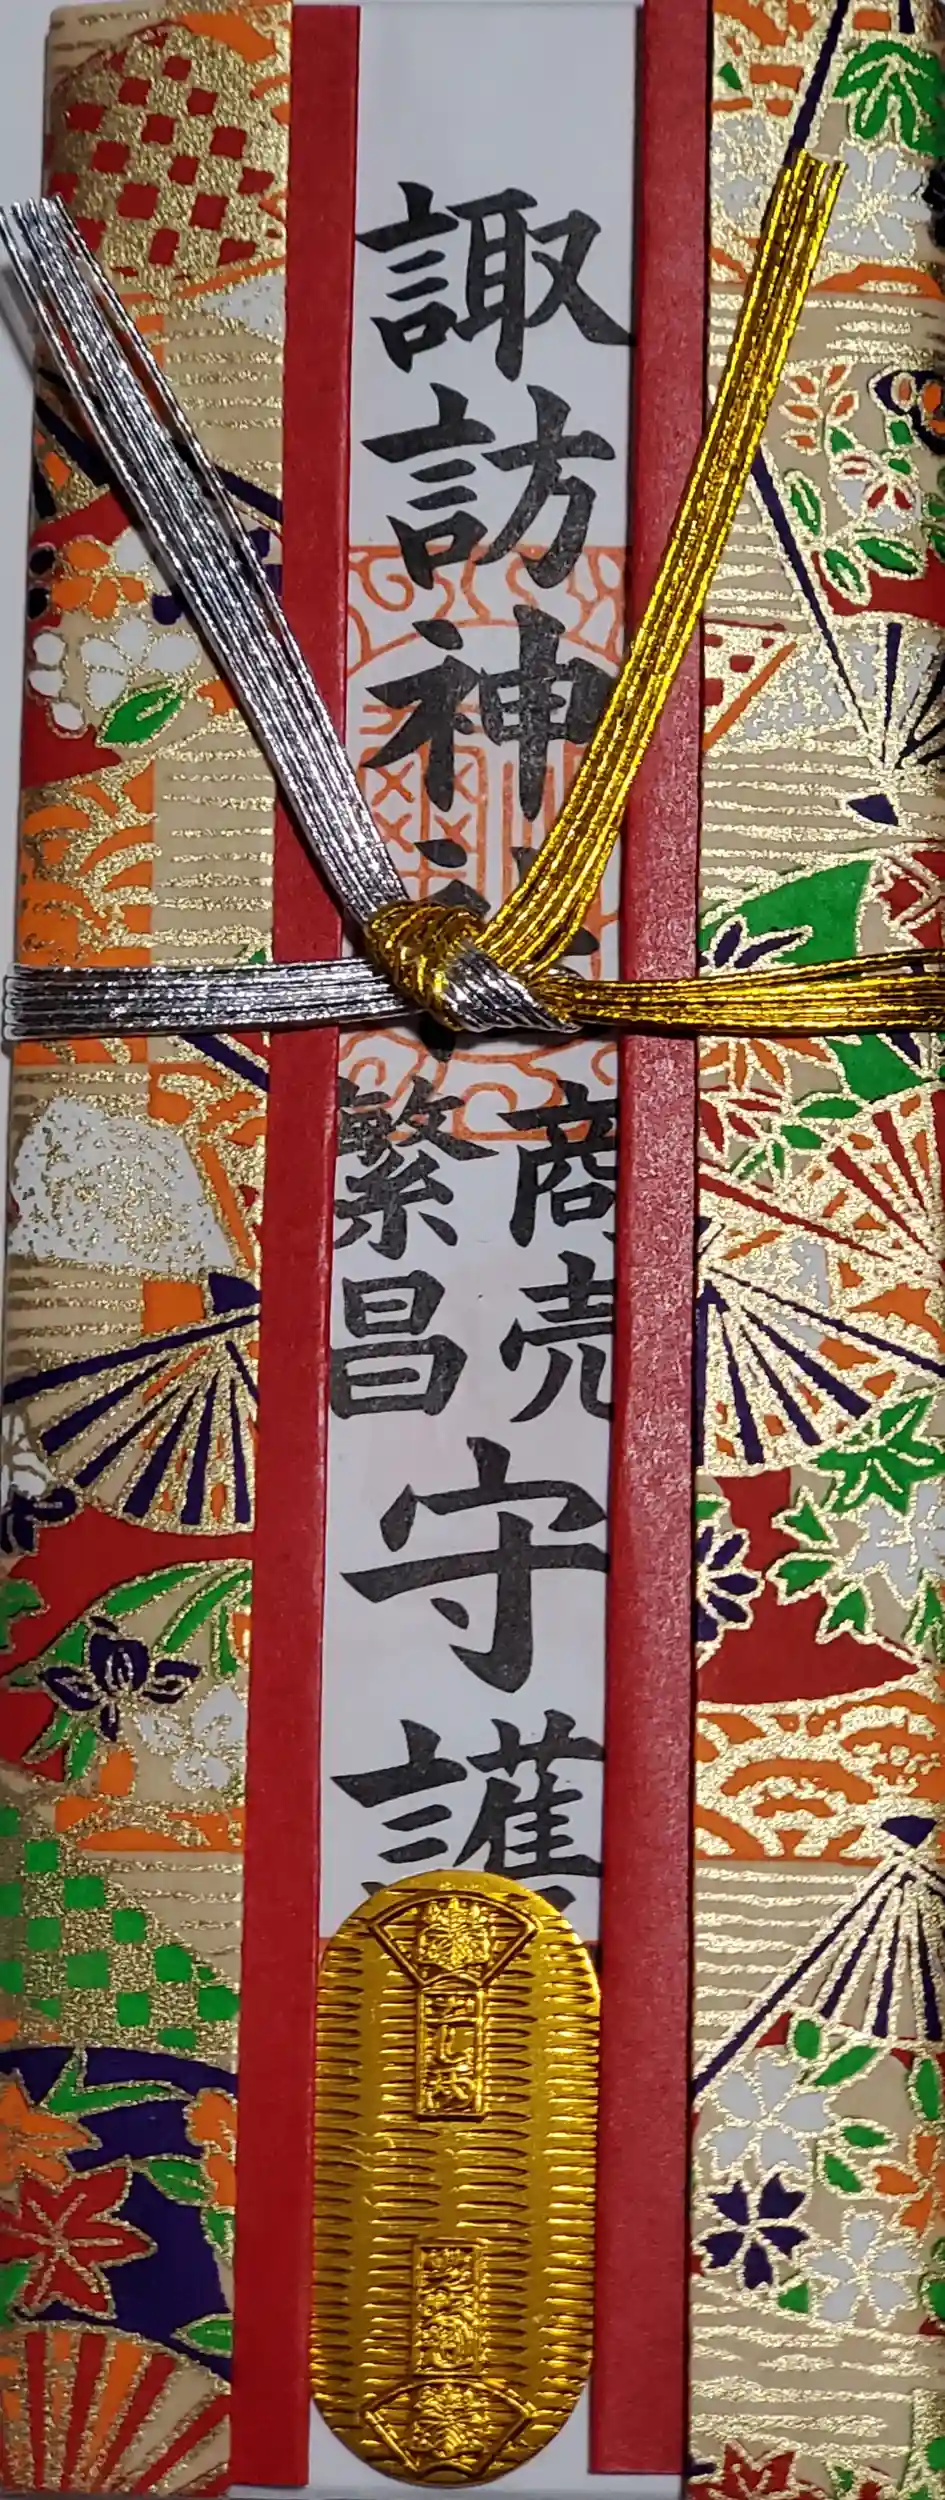 諏訪神社
商売
繁昌
守護